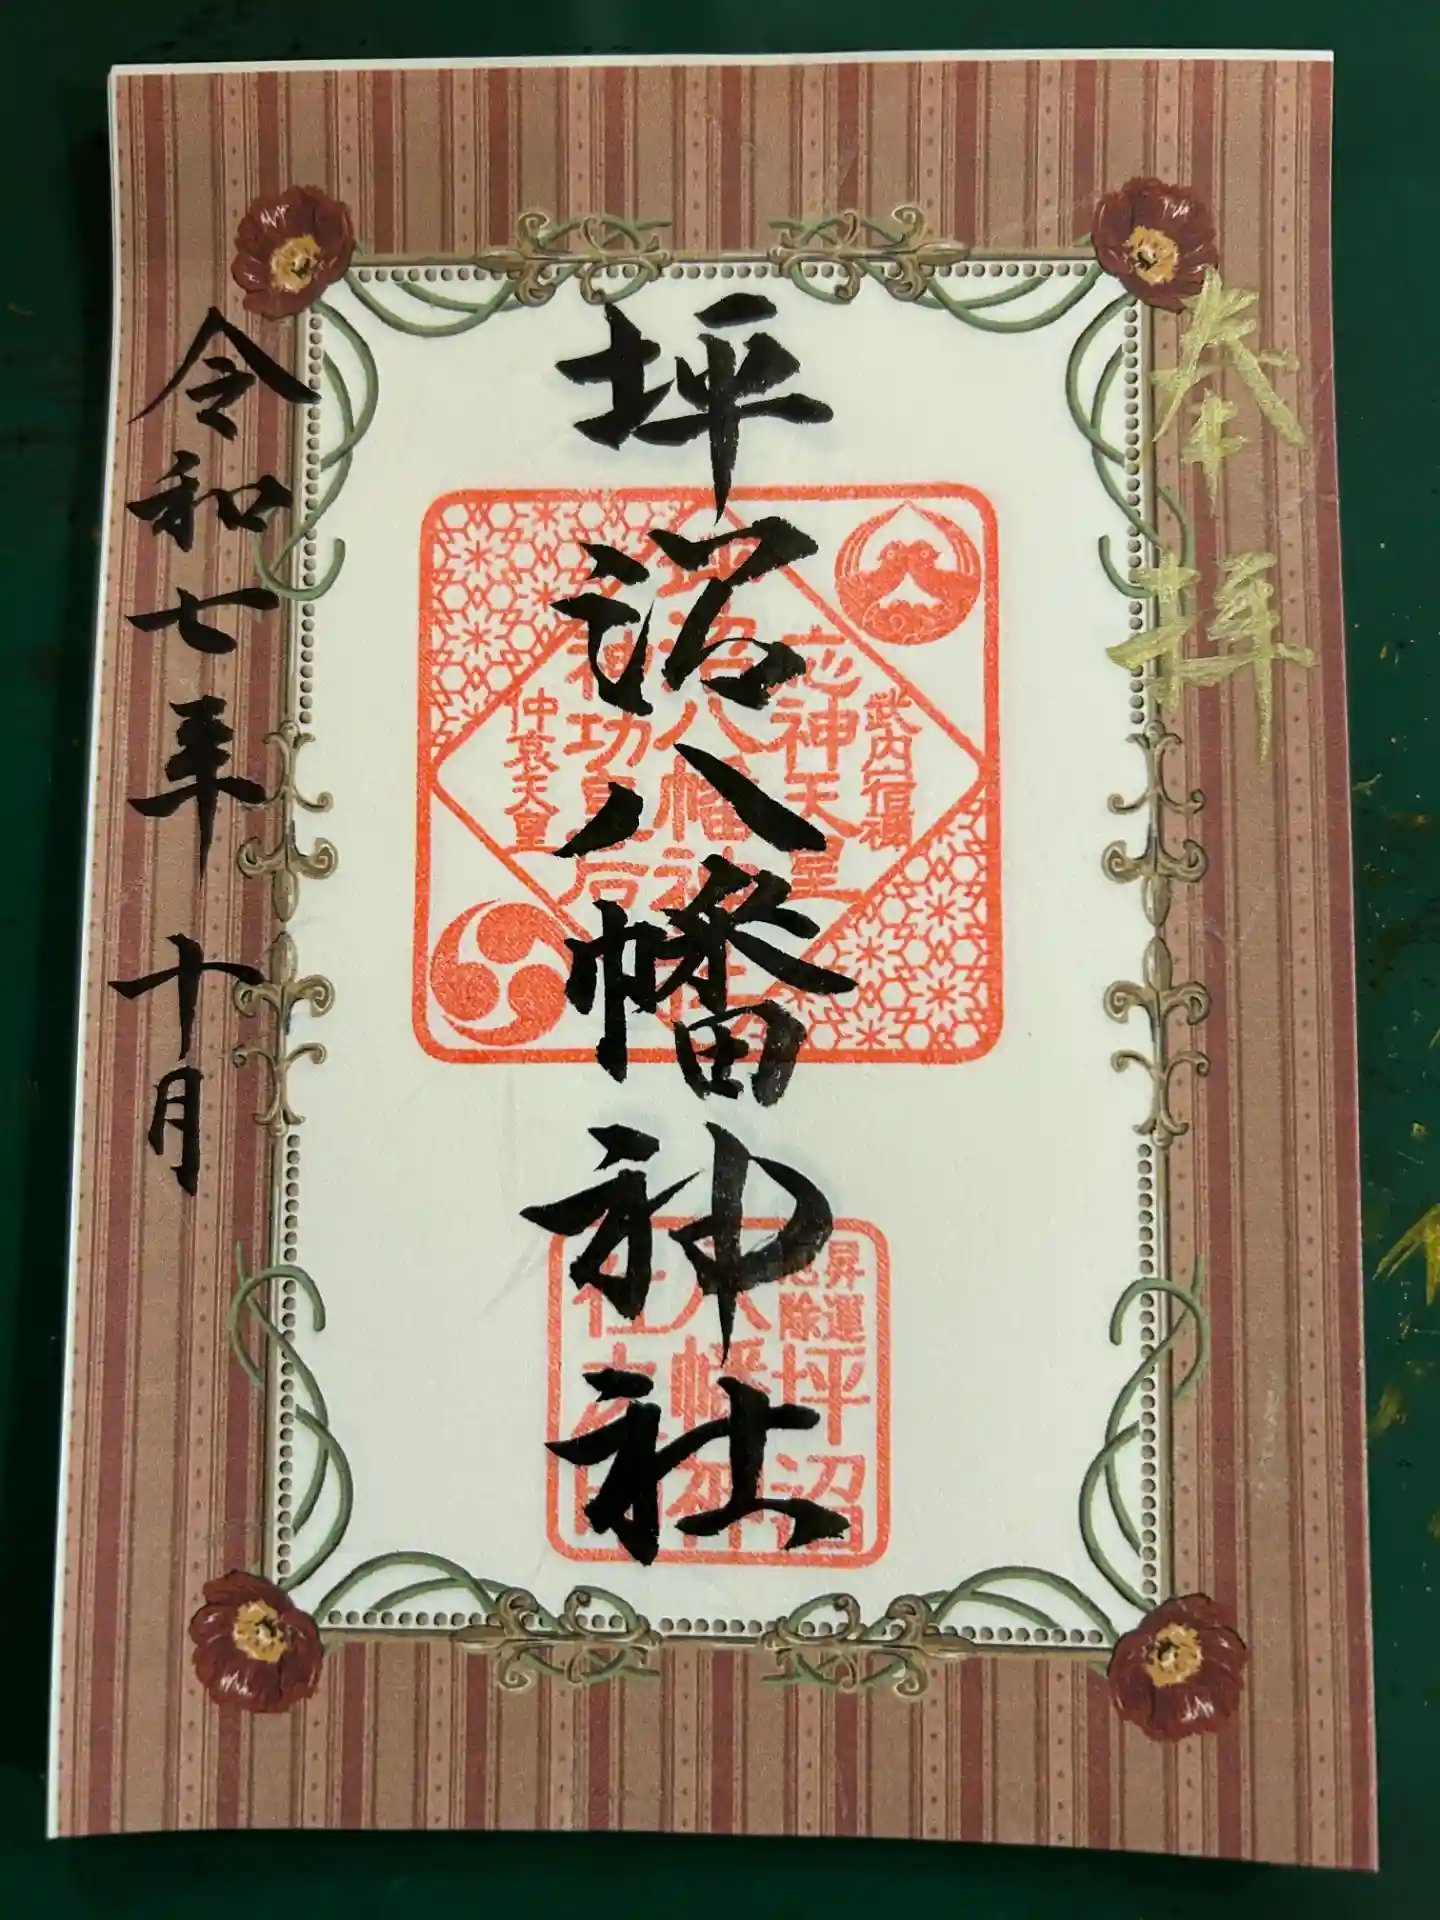 奉拝
坪沼八幡神社
令和七年十月
武内宿禰
応神天皇
坪沼八幡神社
神功皇后
仲哀天皇
昇運
厄除
坪沼
八幡神
社之印